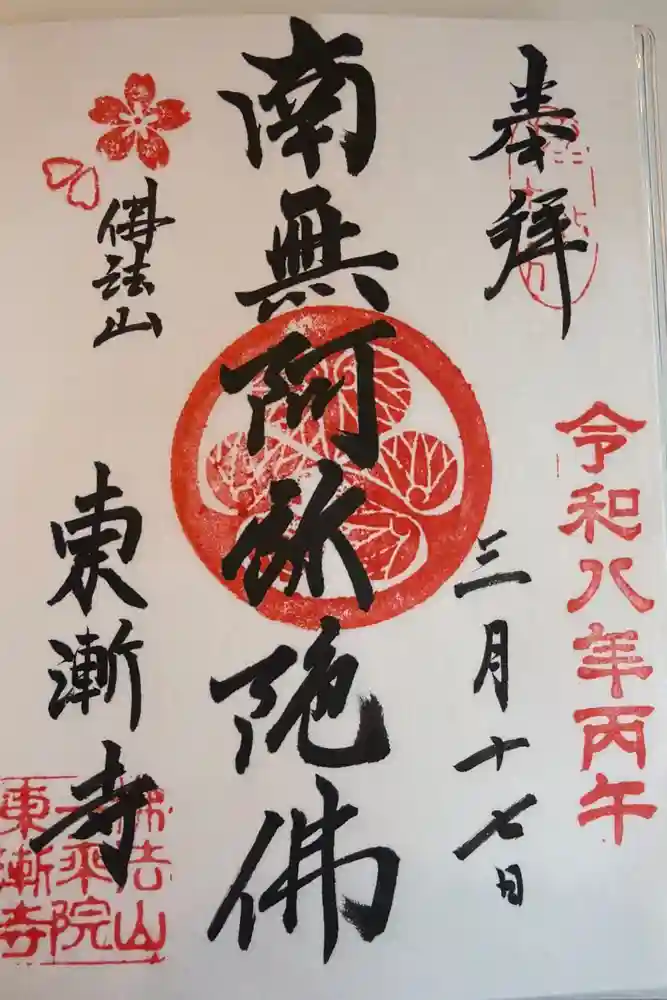 奉拝
令和八年丙午
三月十七日
南無阿弥陀佛
佛法山
東漸寺
佛法山
一乘院
東漸寺